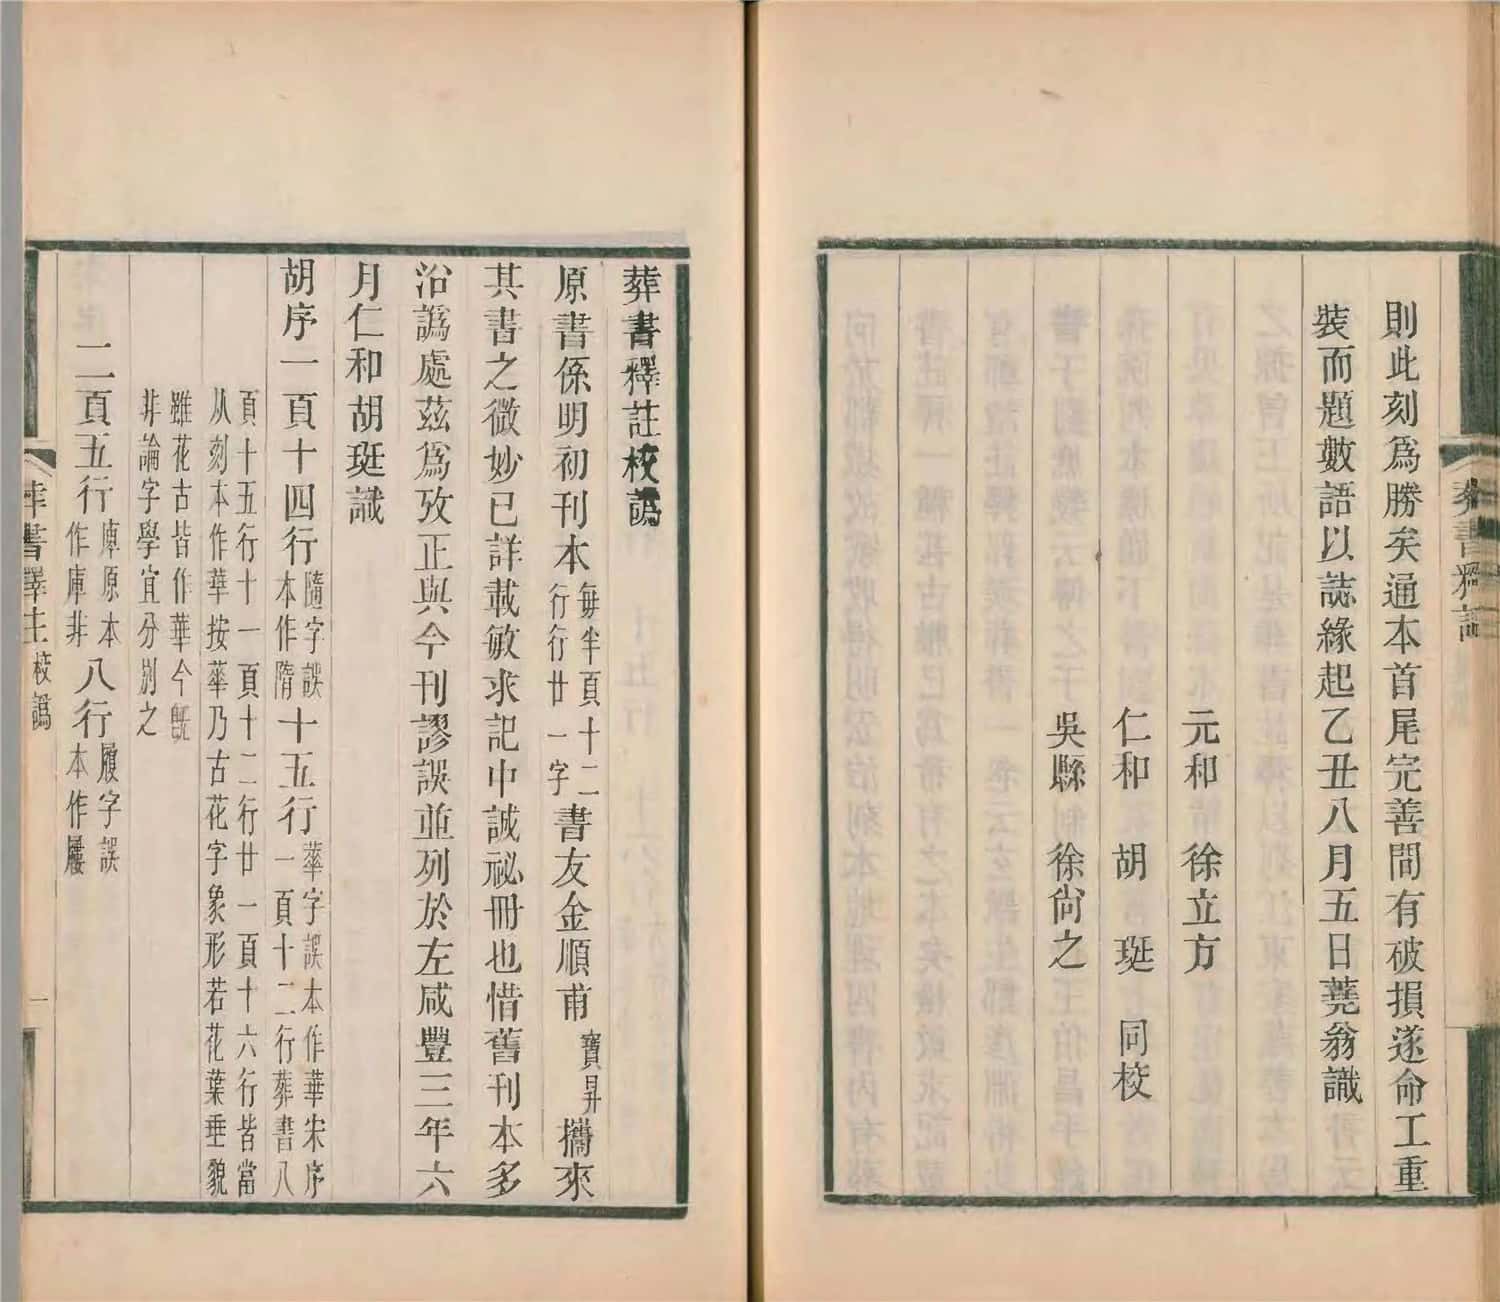 則此刻爲勝矣通本首尾完善間有破損遂命工重
裝而題數語以誌緣起乙丑八月五日蕘翁識
元和 徐立方
仁和 胡 珽 同校
吳縣 徐尙之
葬書釋註校譌
原書係明初刊本每半頁十二行行廿一字書友金順甫寶昇攜來
其書之微妙已詳載敏求記中誠祕冊也惜舊刊本多
沿譌處茲爲攷正與今刊謬誤並列於左咸豐三年六
月仁和胡珽識
胡序一頁十四行隨字誤本作隋十五行蕐字誤本作華宋序一頁十二行葬書八
頁十五行十一頁十二行廿一頁十六行皆當从刻本作華按蕐乃古花字象形若花葉垂貌
雖花古皆作華今旣非論字學宜分別之
二頁五行庳原本作庫非八行履字誤本作屨
葬書釋註
校譌
一